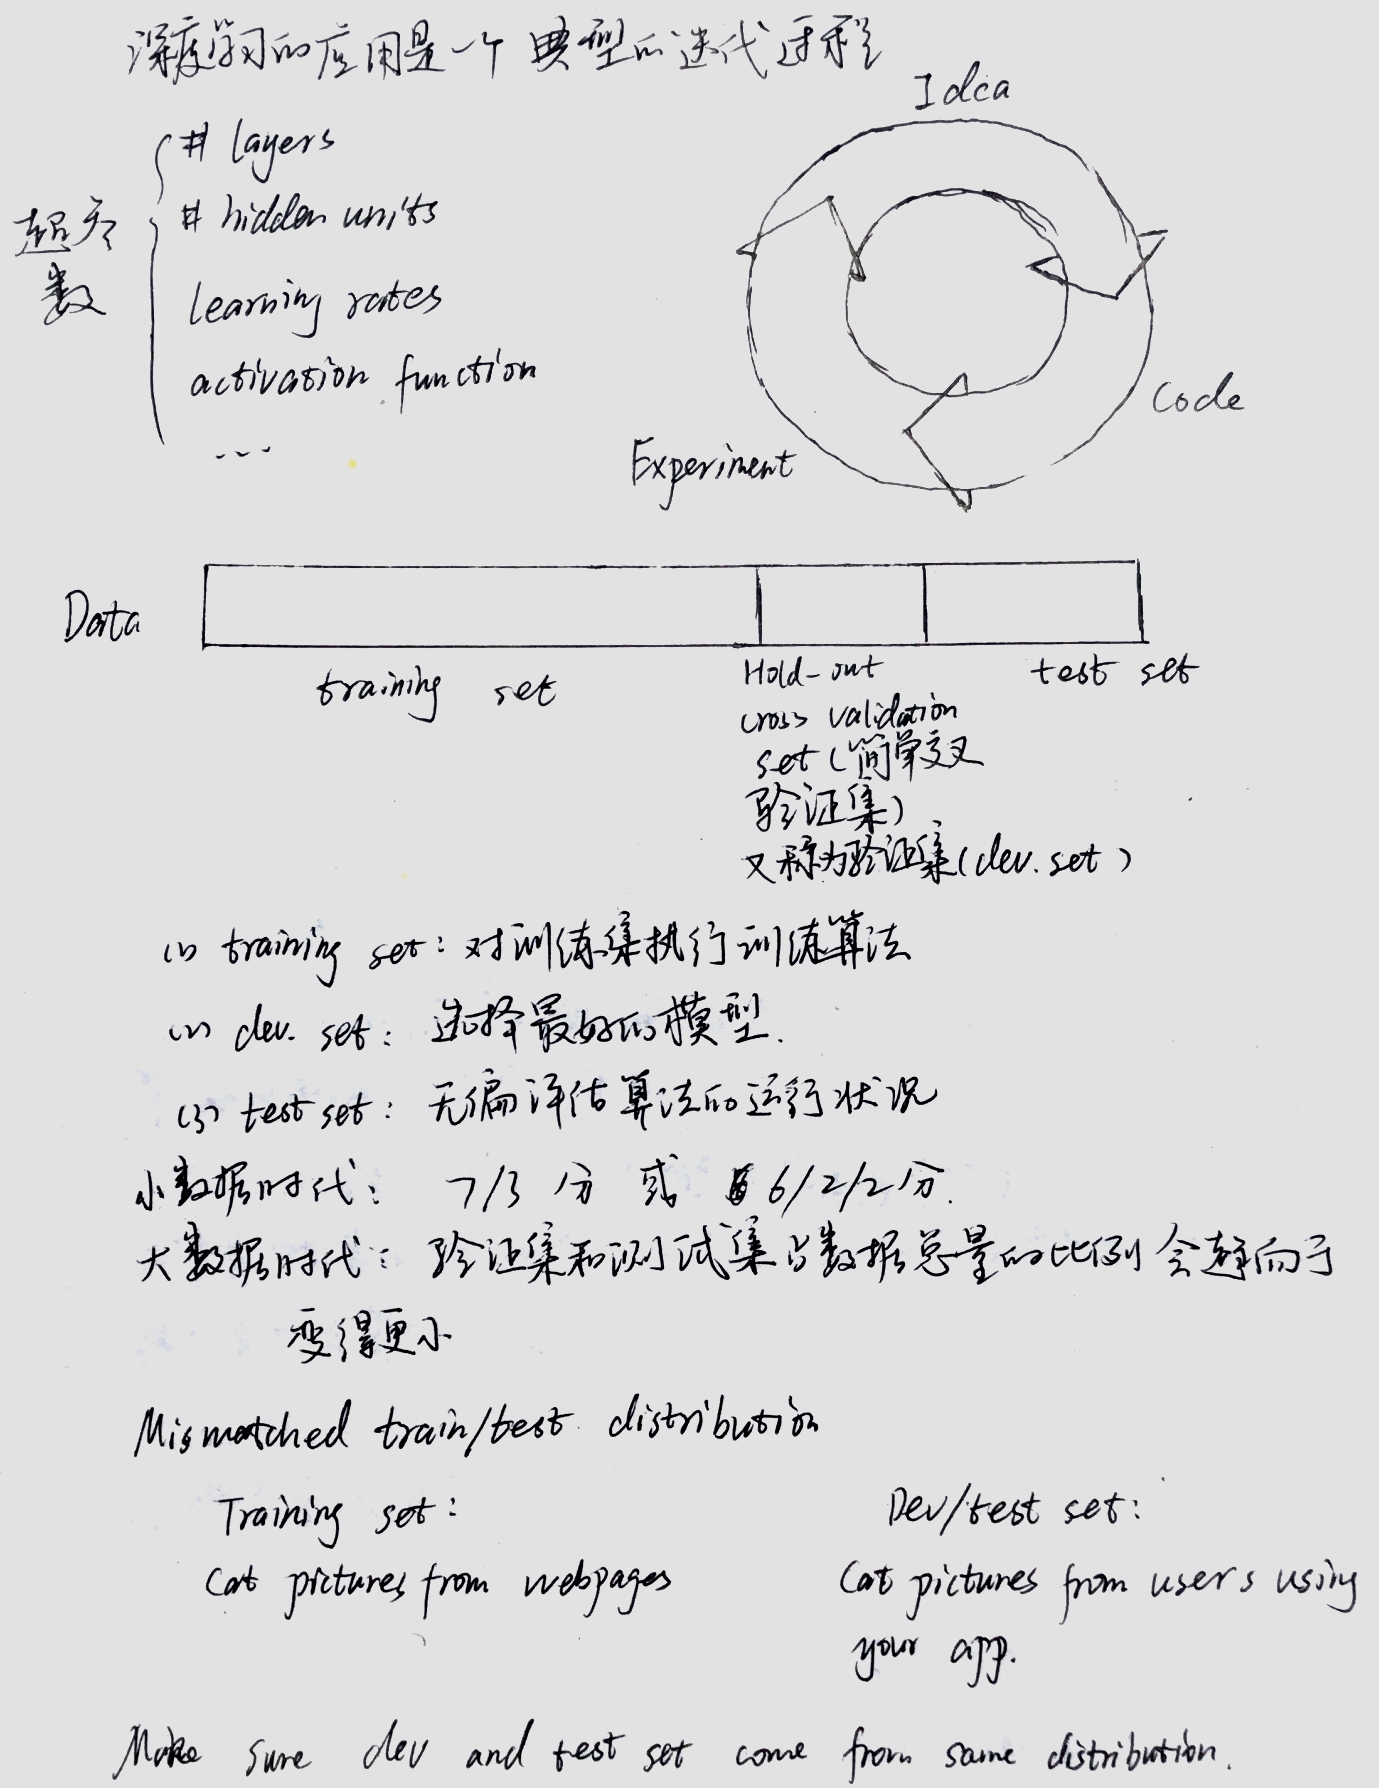 深度学习的应用是一个典型的迭代过程
Idea
# layers
# hidden units
超参
数
learning rates
activation function
...
Code
Experiment
Data
training set
Hold-out
cross validation
set (简单交叉
验证集)
又称为验证集(dev. set)
test set
(1) training set: 对训练集执行训练算法
(2) dev. set: 选择最好的模型.
(3) test set: 无偏评估算法的运行状况
小数据时代: 7/3 分 或 6/2/2分.
大数据时代: 验证集和测试集占数据总量的比例会趋向于
变得更小
Mismatched train/test distribution
Training set:
Cat pictures from webpages
Dev/test set:
Cat pictures from users using
your app.
Make sure dev and test set come from same distribution.